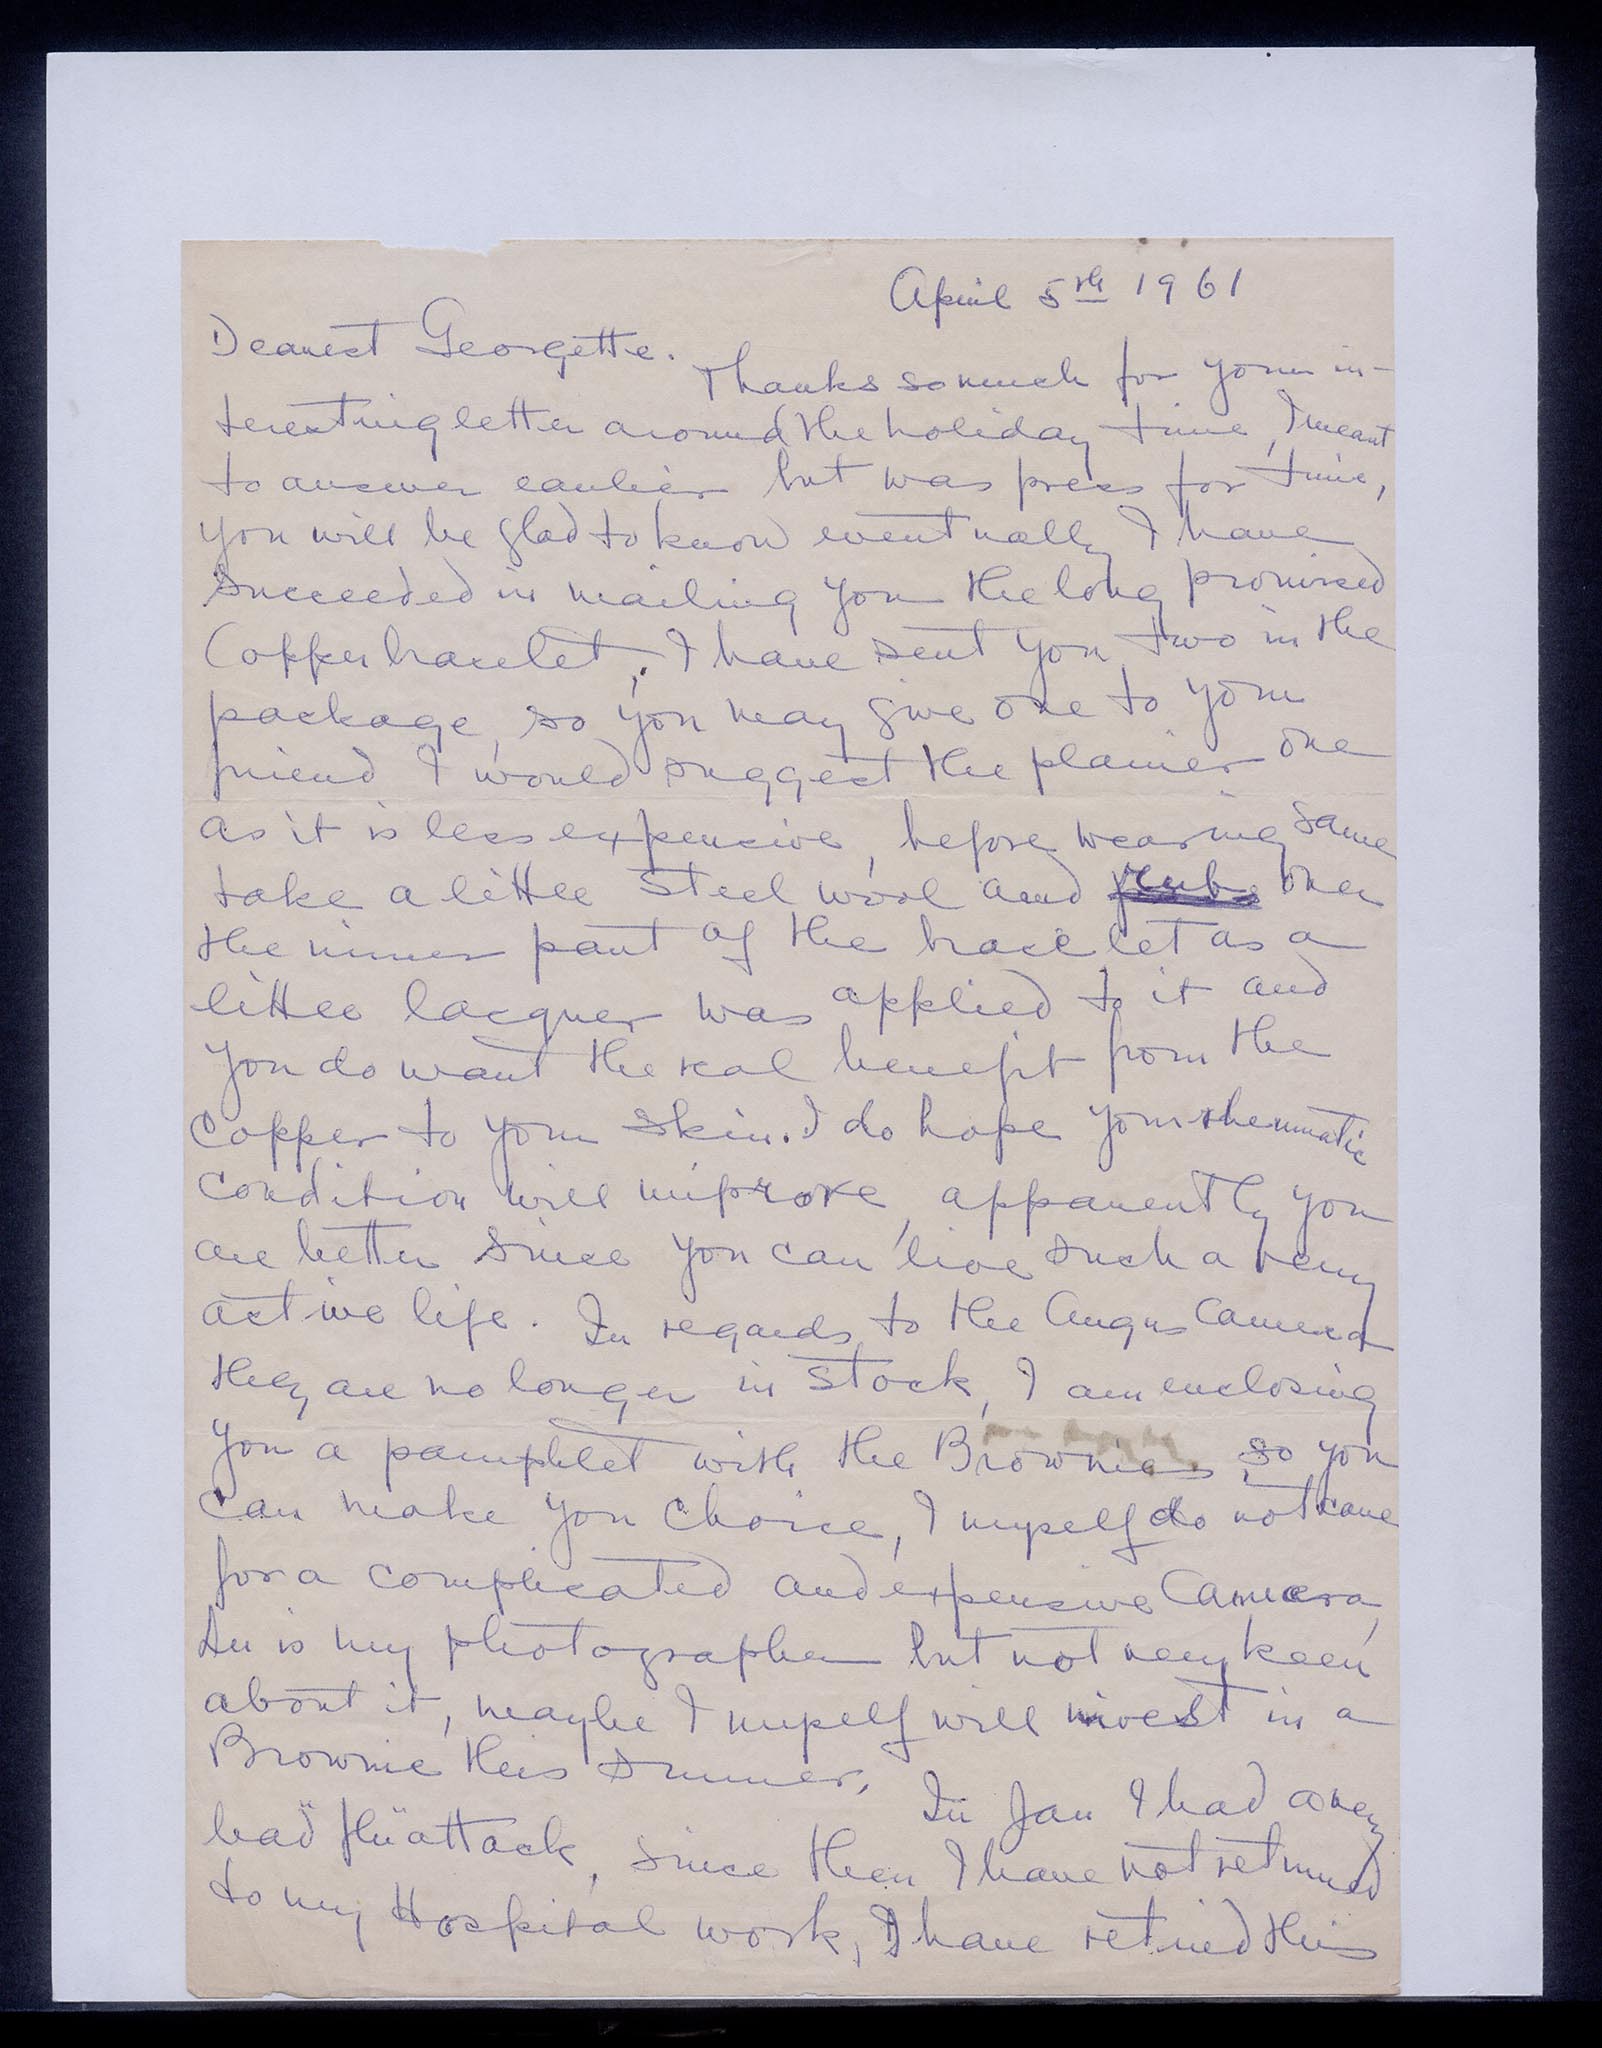 April 5th 1961
Dearest Georgette.
Thanks so much for your in-
teresting letter around the holiday time, I meant
to answer earlier but was press for time,
you will be glad to know eventually I have
succeeded in mailing you the long promised
Copper bracelet, I have sent you two in the
package, so you may give one to your
friend I would suggest the plainer one
as it is less expensive, before wearing same
take a little steel wool and rub over
the inner part of the bracelet as a
little lacquer was applied to it and
you do want the real benefit from the
copper to your skin. I do hope your rheumatic
condition will improve, apparently you
are better since you can live such a very
active life. In regards to the Angus Camera
they are no longer in stock, I am enclosing
you a pamphlet with the Brownies so you
can make you choice, I myself do not care
for a complicated and expensive Camera,
is my photographer but not very keen
about it, maybe I myself will invest in a
Brownie this summer,
In Jan I had a very
bad "flu" attack, since then I have not returned
to my Hospital work, I have retired this